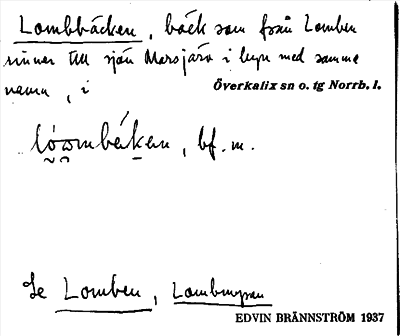 Lombbäcken, bäck som från Lomben
rinner till sjön Marsjärv i byn med samma
namn, i Överkalix sn o. tg Norrb. l.
bf. m.
Se Lomben, Lombmyran
EDVIN BRÄNNSTRÖM 1937